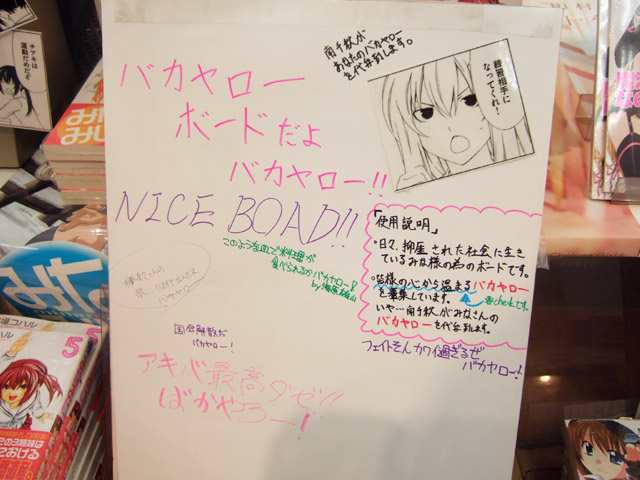 南千秋が
あなたのバカヤロー
を代弁します。
綾香相手に
なってくれ!
チアキは
運動だめだぞ
バカヤロー
ボードだよ
バカヤロー!!
NICE BOAD!!
このような皿で料理が
食べられるかバカヤロー!
by 海原雄山
「使用説明」
・日々、抑圧された社会に生き
ているみな様の為のボードです。
・皆様の心から温まるバカヤロー
を募集しています。
要checkです。
いや…南千秋がみなさんの
バカヤローを代弁します。
バカヤロー
国会解散だ
バカヤロー!
フェイトそんカワイ過ぎるぜ
バカヤロー!
アキバ最高ダゼ!!
ばかやろー!
みな
みけ
みな
場コハル
5
この3姉妹は
おける